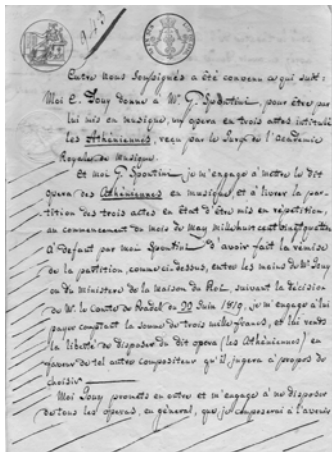 943
Entre nous soussignés a été convenu ce qui suit :
Moi E. Jouy donne à Mr. G. Spontini, pour être par
lui mis en musique, un opera en trois actes intitulé
les Athéniennes, reçu par le Jury de l'Académie
Royale de Musique.
Et moi G. Spontini je m'engage à mettre le dit
opera des Athéniennes en musique, et à livrer la par-
tition des trois actes en état d'être mis en répétition,
au commencement du mois de May mil huit cent vingt quatre
à défaut par moi Spontini d'avoir fait la remise
de la partition, comme ci-dessus, entre les mains de Mr. Jouy
ou du Ministere de la Maison du Roi, suivant la décision
de Mr. le Comte de Pradel du 22 Juin 1819, je m'engage à lui
payer comptant la somme de trois mille francs, et lui rends
la liberté de disposer du dit opera (les Athéniennes) en
faveur de tel autre compositeur qu'il jugera à propos de
choisir
Moi Jouy promets en outre et m'engage à ne disposer
de tous les operas, en général, que je composerai à l'avenir